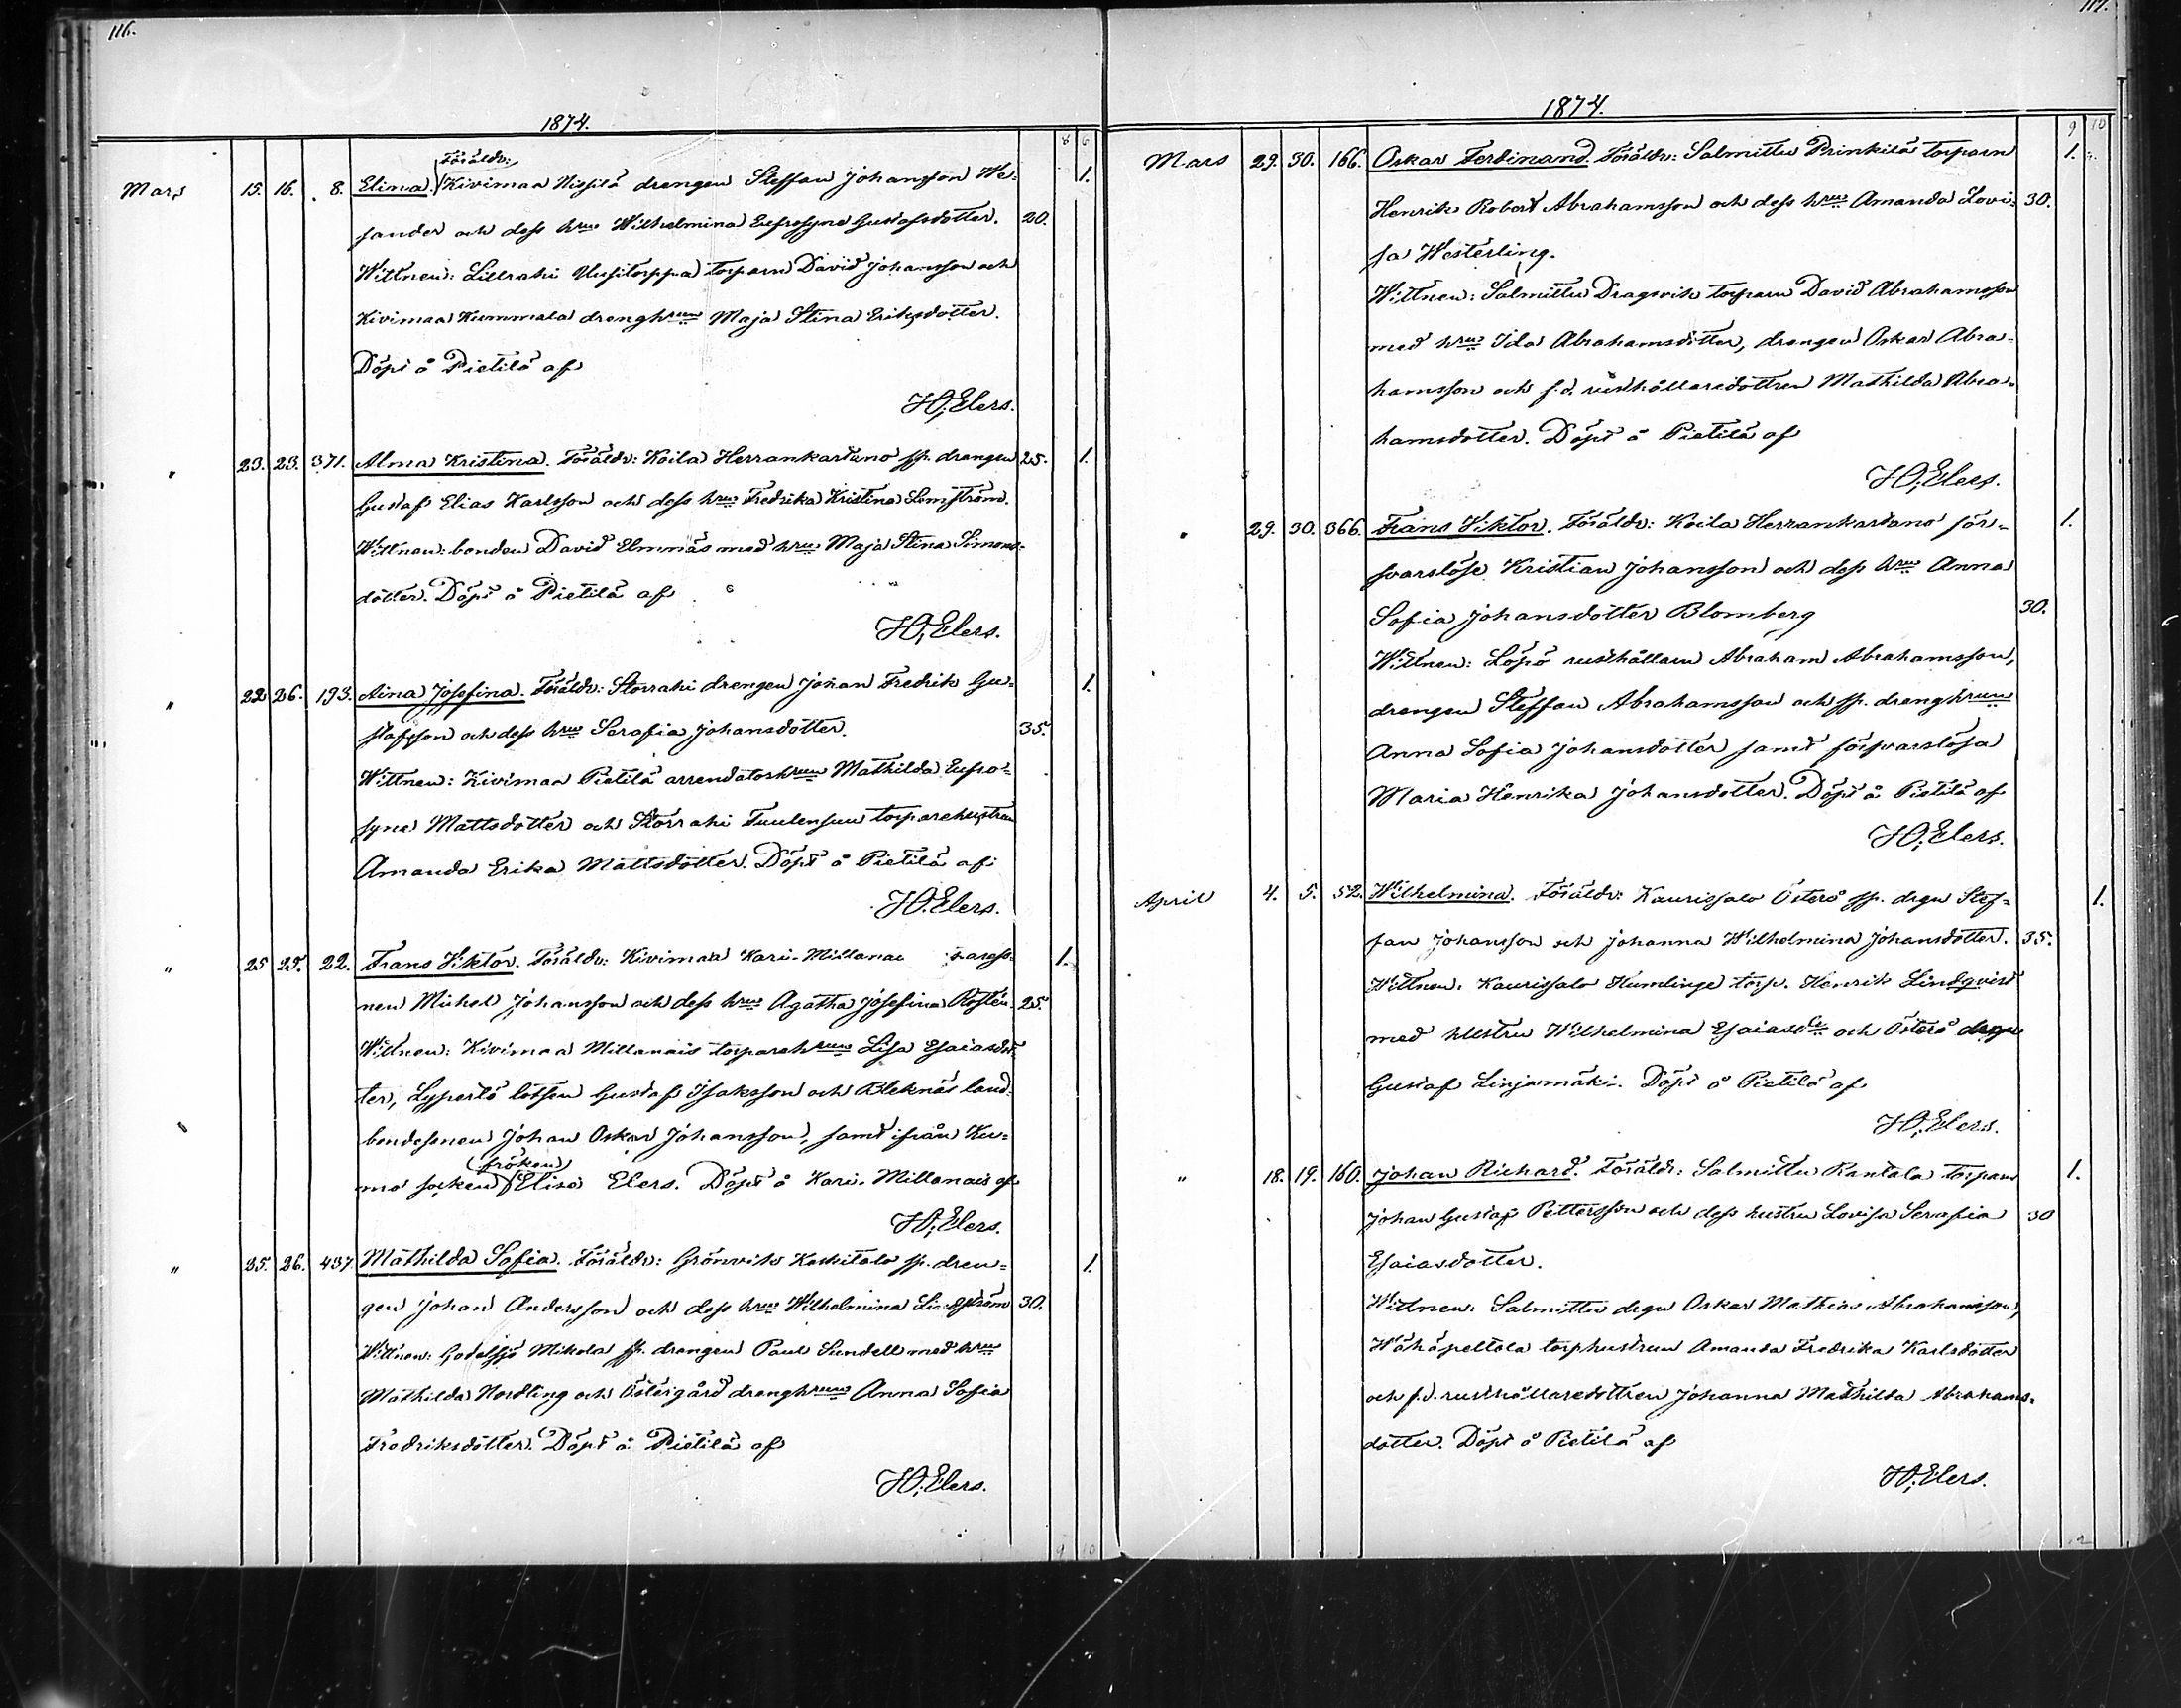 116.
1874.
8 6
Föräldr:
Mars 15. 16. 8. Elina. Kivimaa Nissilä drengen Steffan Johansson We= 1.
sander och dess hru Wilhelmina Eufrosyne Gustafsdotter. 20.
Wittnen: Lillrahi Uusitorppa torparn David Johansson och
Kivimaa Kummala drenghrun Maja Stina Eriksdotter.
Döpt å Pietilä af
H. Elers.
" 23. 23. 371. Alma Kristina. Föräldr: Koila Herrankartano sp. drengen 25. 1.
Gustaf Elias Karlsson och dess hru Fredrika Kristina Lemström.
Wittnen: bonden David Elmnäs med hru Maja Stina Simons-
dotter. Döpt å Pietilä af
H. Elers.
" 22 26. 193. Aina Josefina. Föräldr: Storrahi drengen Johan Fredrik Gu= 1.
stafsson och dess hru Serafia Johansdotter. 35.
Wittnen: Kivimaa Pietilä arrendatorhrun Mathilda Eufro=
syne Mattsdotter och Storrahi Tuulensuu torparehustrun
Amanda Erika Mattsdotter. Döpt å Pietilä af
H. Elers.
" 25 29. 22. Frans Viktor. Föräldr: Kivimaa Kari-Millanai 1.
nen Mickel Johansson och dess hru Agatha Josefina Rostén. 25.
Wittnen: Kivimaa Millanais torparehrun Lisa Esaiasdot-
ter, Lypertö lotsen Gustaf Isaksson och Bleknäs land-
bondesonen Johan Oskar Johansson, samt ifrån Ku=
(fröken)
mo socken Elise Elers. Döpt å Kari-Millanais af
H. Elers.
" 25. 26. 437. Mathilda Sofia. Föräldr: Grönvik Koskitalo sp. dren= 1.
gen Johan Andersson och dess hru Wilhelmina Lindström 30.
Wittnen: Godelsjö Mikola sp. drengen Paul Sundell med hru
Mathilda Nordling och Östergård drenghrun Anna Sofia
Fredriksdotter. Döpt å Pietilä af
H. Elers.
9 10
117.
1874.
9 10
Mars 29. 30. 166. Oskar Ferdinand. Föräldr: Salmittu Prinkilä torparn 1.
Henrik Robert Abrahamsson och dess hru Amanda Lovi= 30.
sa Westerling.
Wittnen: Salmittu Dragsvik torparn David Abrahamsson
med hru Ida Abrahamsdotter, drengen Oskar Abra=
hamsson och f.d. rusthållaredottren Mathilda Abra=
hamsdotter. Döpt å Pietilä af
H. Elers.
" 29. 30. 366. Frans Viktor. Föräldr: Koila Herrankartano för= 1.
svarslöse Kristian Johansson och dess hru Anna
Sofia Johansdotter Blomberg 30.
Wittnen: Löpö rusthållarn Abraham Abrahamsson,
drengen Steffan Abrahamsson och sp. drenghrun
Anna Sofia Johansdotter samt försvarslösa
Maria Henrika Johansdotter. Döpt å Pietilä af
H. Elers.
April 4. 5. 52. Wilhelmina. Föräldr: Kaurissalo Österö sp. drgn Stef= 1.
fan Johansson och Johanna Wilhelmina Johansdotter. 35.
Wittnen: Kaurissalo Humlinge torp. Henrik Lindqvist
med hustru Wilhelmina Esaiasdr och Österö drgn
Gustaf Linjamäki. Döpt å Pietilä af
H. Elers.
" 18. 19. 160. Johan Richard. Föräldr: Salmittu Rantala torparn 1.
Johan Gustaf Pettersson och dess hustru Lovisa Serafia 30
Esaiasdotter.
Wittnen: Salmittu drgn Oskar Mathias Abrahamsson,
Wähäpeltola torphustrun Amanda Fredrika Karlsdotter
och f.d. rusthållaredottren Johanna Mathilda Abrahams-
dotter. Döpt å Pietilä af
H. Elers.